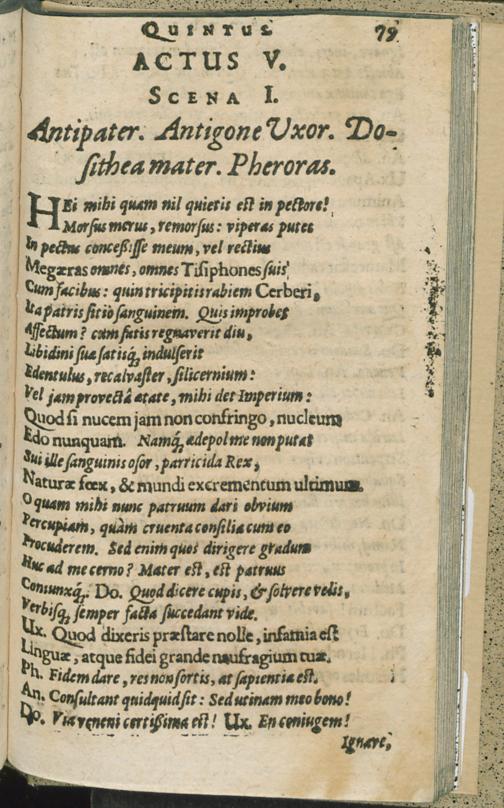 QUINTUS 79
ACTUS V.
SCENA I.
Antipater. Antigone Uxor. Do-
sithea mater. Pheroras.
HEi mihi quam nil quietis est in pectore!
Morsus merus, remorsus: viperas putes
In pectus concessisse meum, vel rectius
Megæras omnes, omnes Tisiphones suis
Cum facibus: quin tricipitis rabiem Cerberi,
Ita patris sitio sanguinem. Quis improbet
Affectum? cum satis regnaverit diu,
Libidini suæ satisq́, indulserit
Edentulus, recalvaster, silicernium:
Vel jam provectâ ætate, mihi det Imperium:
Quod si nucem jam non confringo, nucleum
Edo nunquam. Namq́, ædepol me non putat
Sui ille sanguinis osor, parricida Rex,
Naturæ fœx, & mundi excrementum ultimum.
O quam mihi nunc patruum dari obvium
Percupiam, quàm cruenta consilia cum eo
Procuderem. Sed enim quos dirigere gradum
Huc ad me cerno? Mater est, est patruus
Conjunxq́. Do. Quod dicere cupis, & solvere velis,
Verbisq́, semper facta succedant vide.
Ux. Quod dixeris præstare nolle, infamia est
Linguæ, atque fidei grande naufragium tuæ.
Ph. Fidem dare, res non fortis, at sapientia est.
An. Consultant quidquid sit: Sed utinam meo bono!
Do. Via veneni certissima est! Ux. En coniugem!
Ignave,